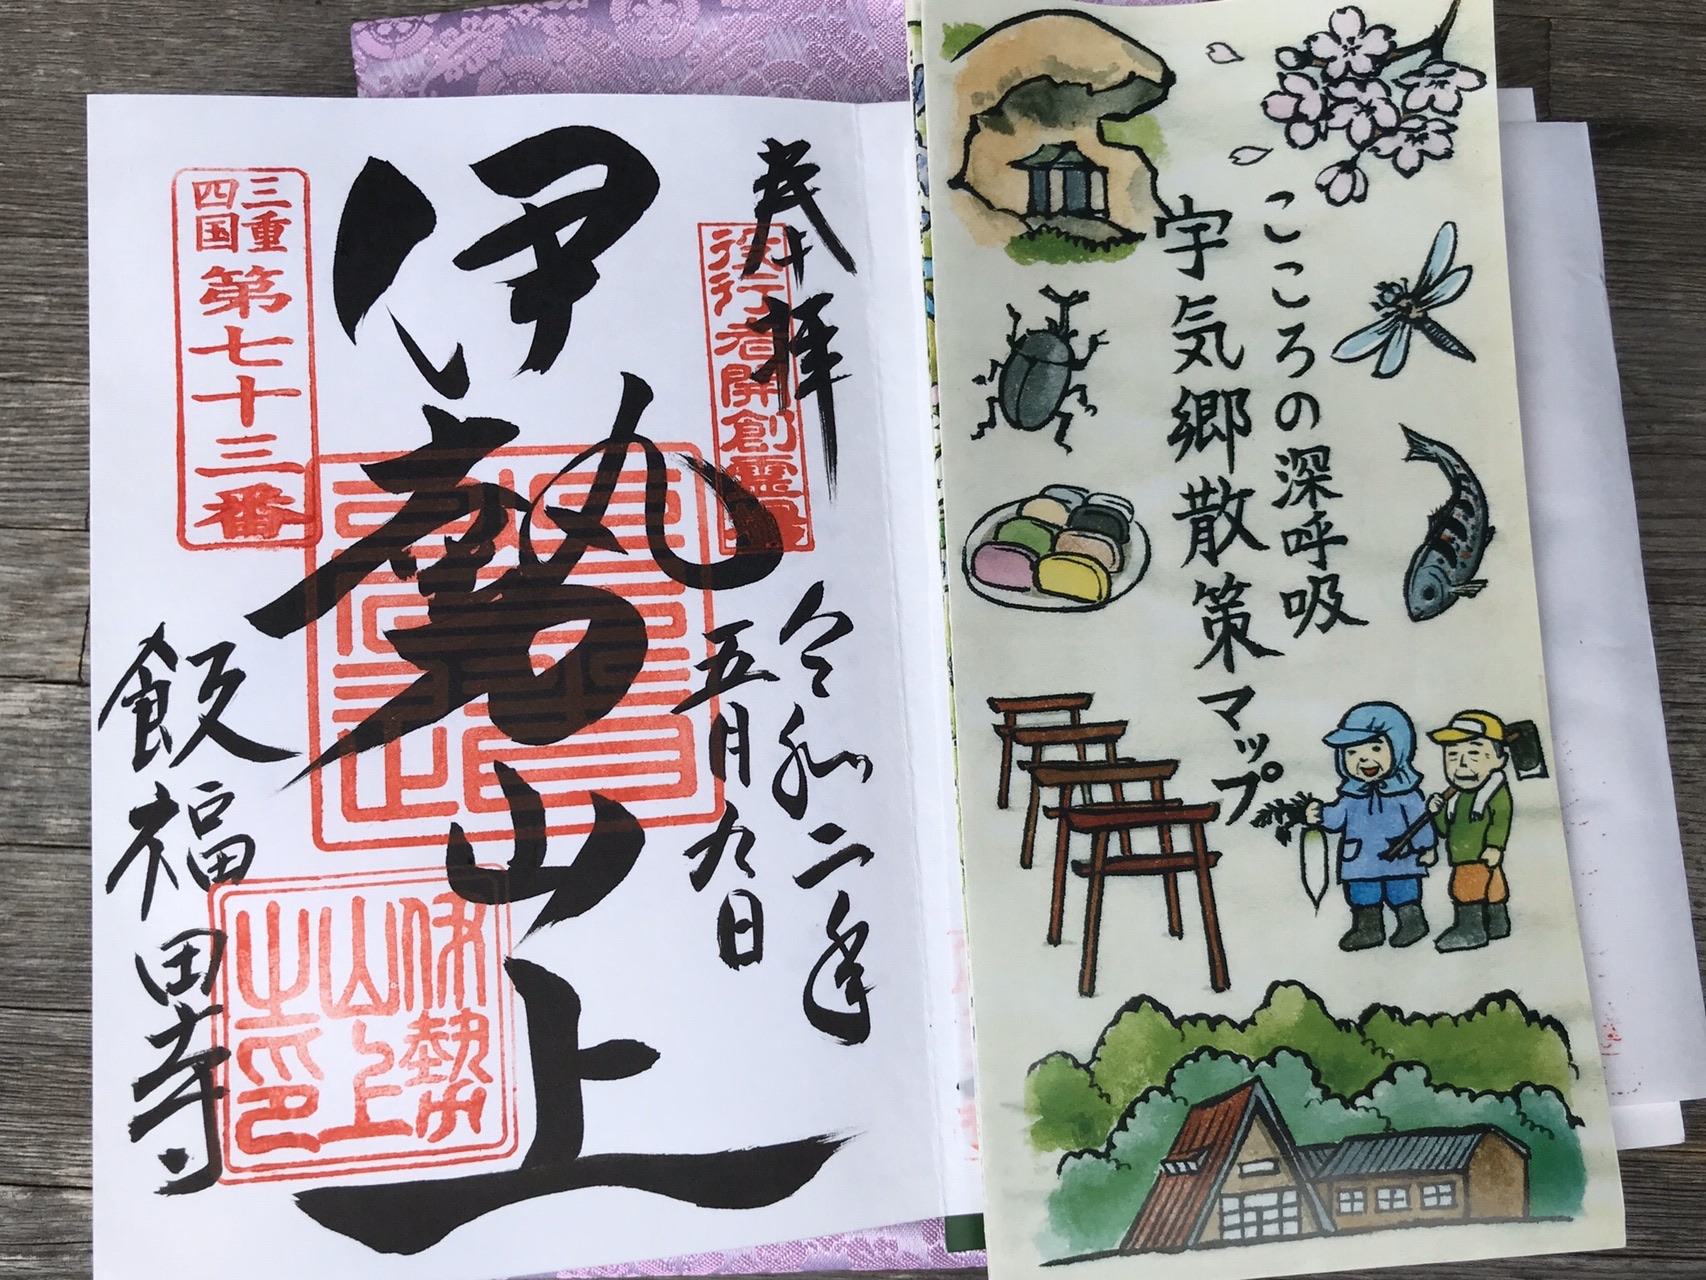 奉拝
役行者開創霊場
令和二年
五月九日
伊勢山上
三重
四国
第七十三番
伊勢
山上
之印
飯福田寺
こころの深呼吸
宇気郷散策マップ